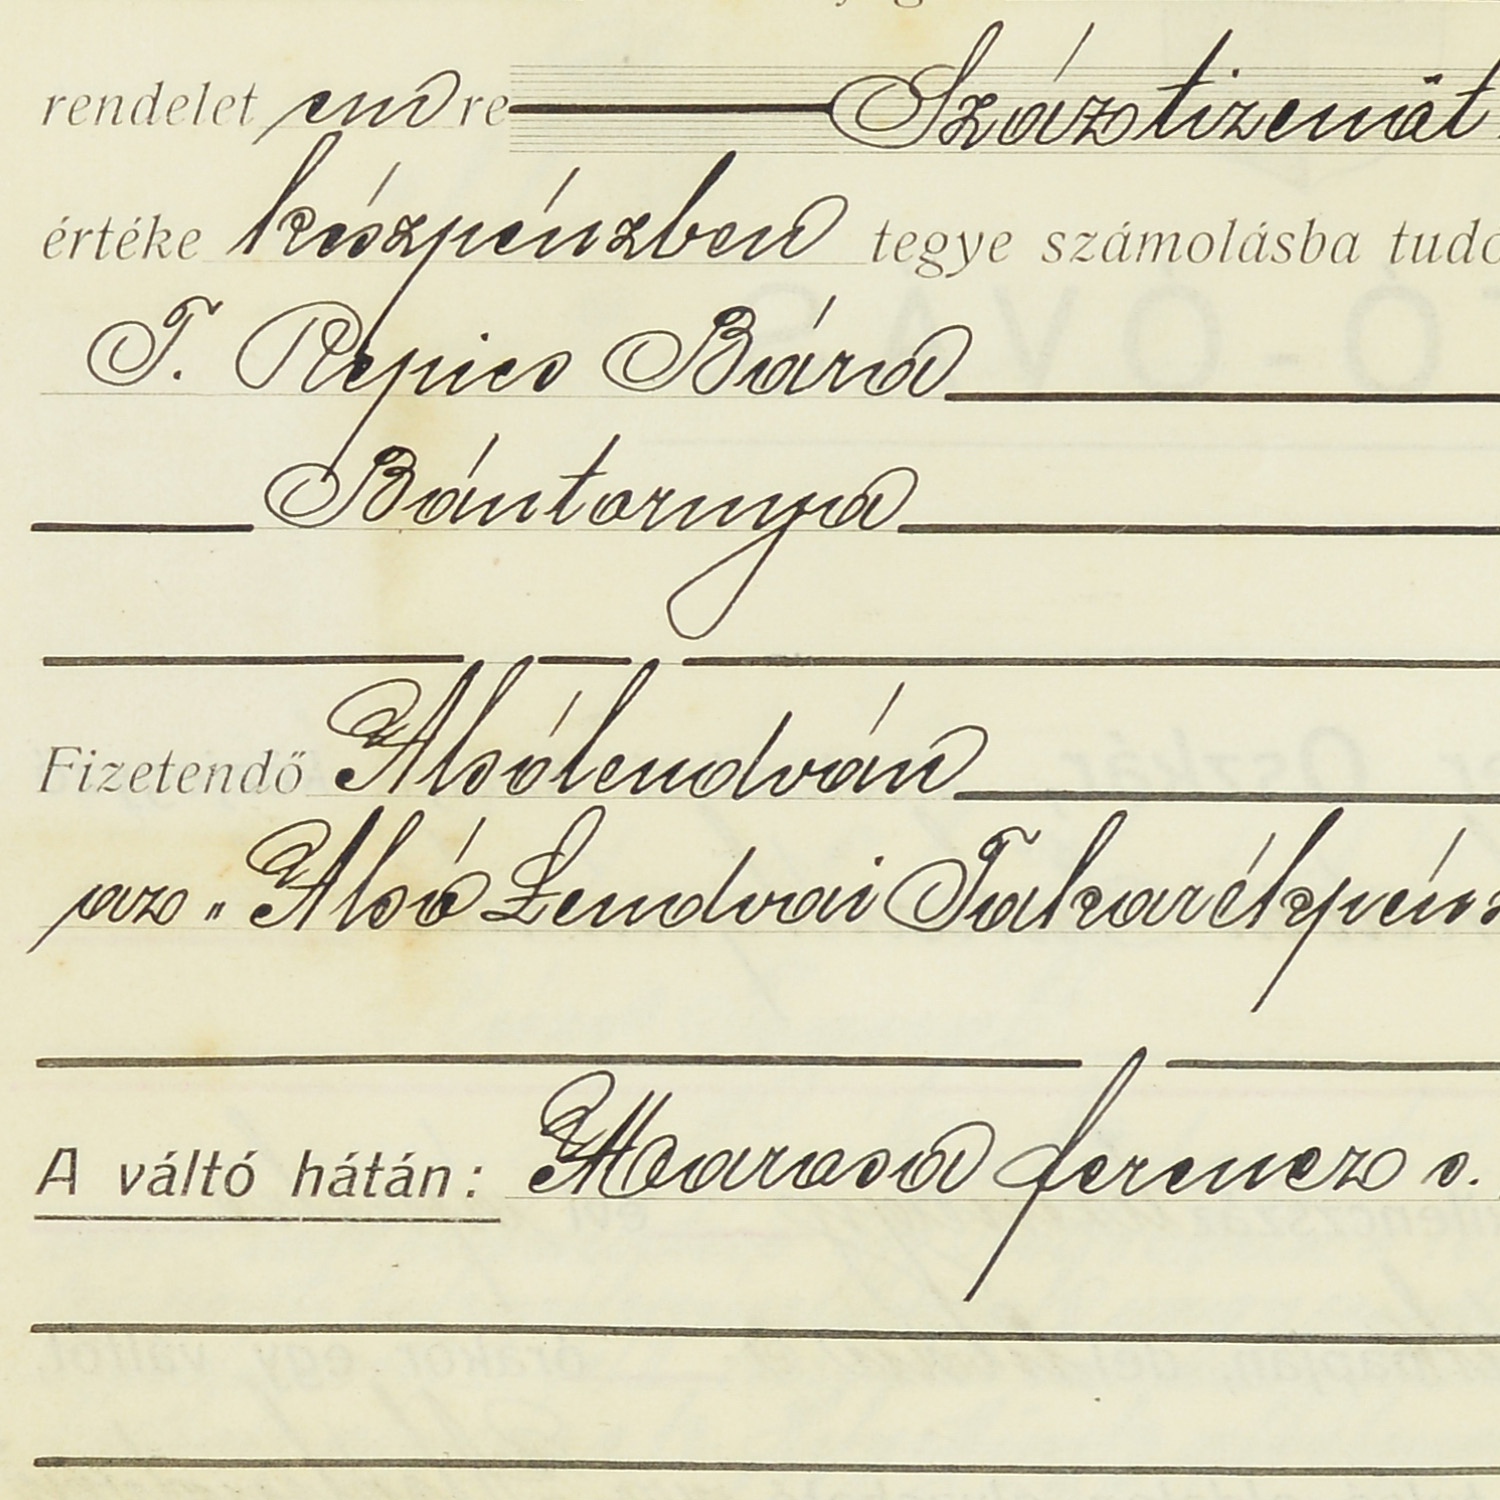 rendelet end re Száztizenöt
értéke készpénzben tegye számolásba tudo
T. Repics Bára
Bántornya
Fizetendő Alsólendván
az „Alsó Lendvai Takarékpénz
A váltó hátán: Marosa ferencz s.